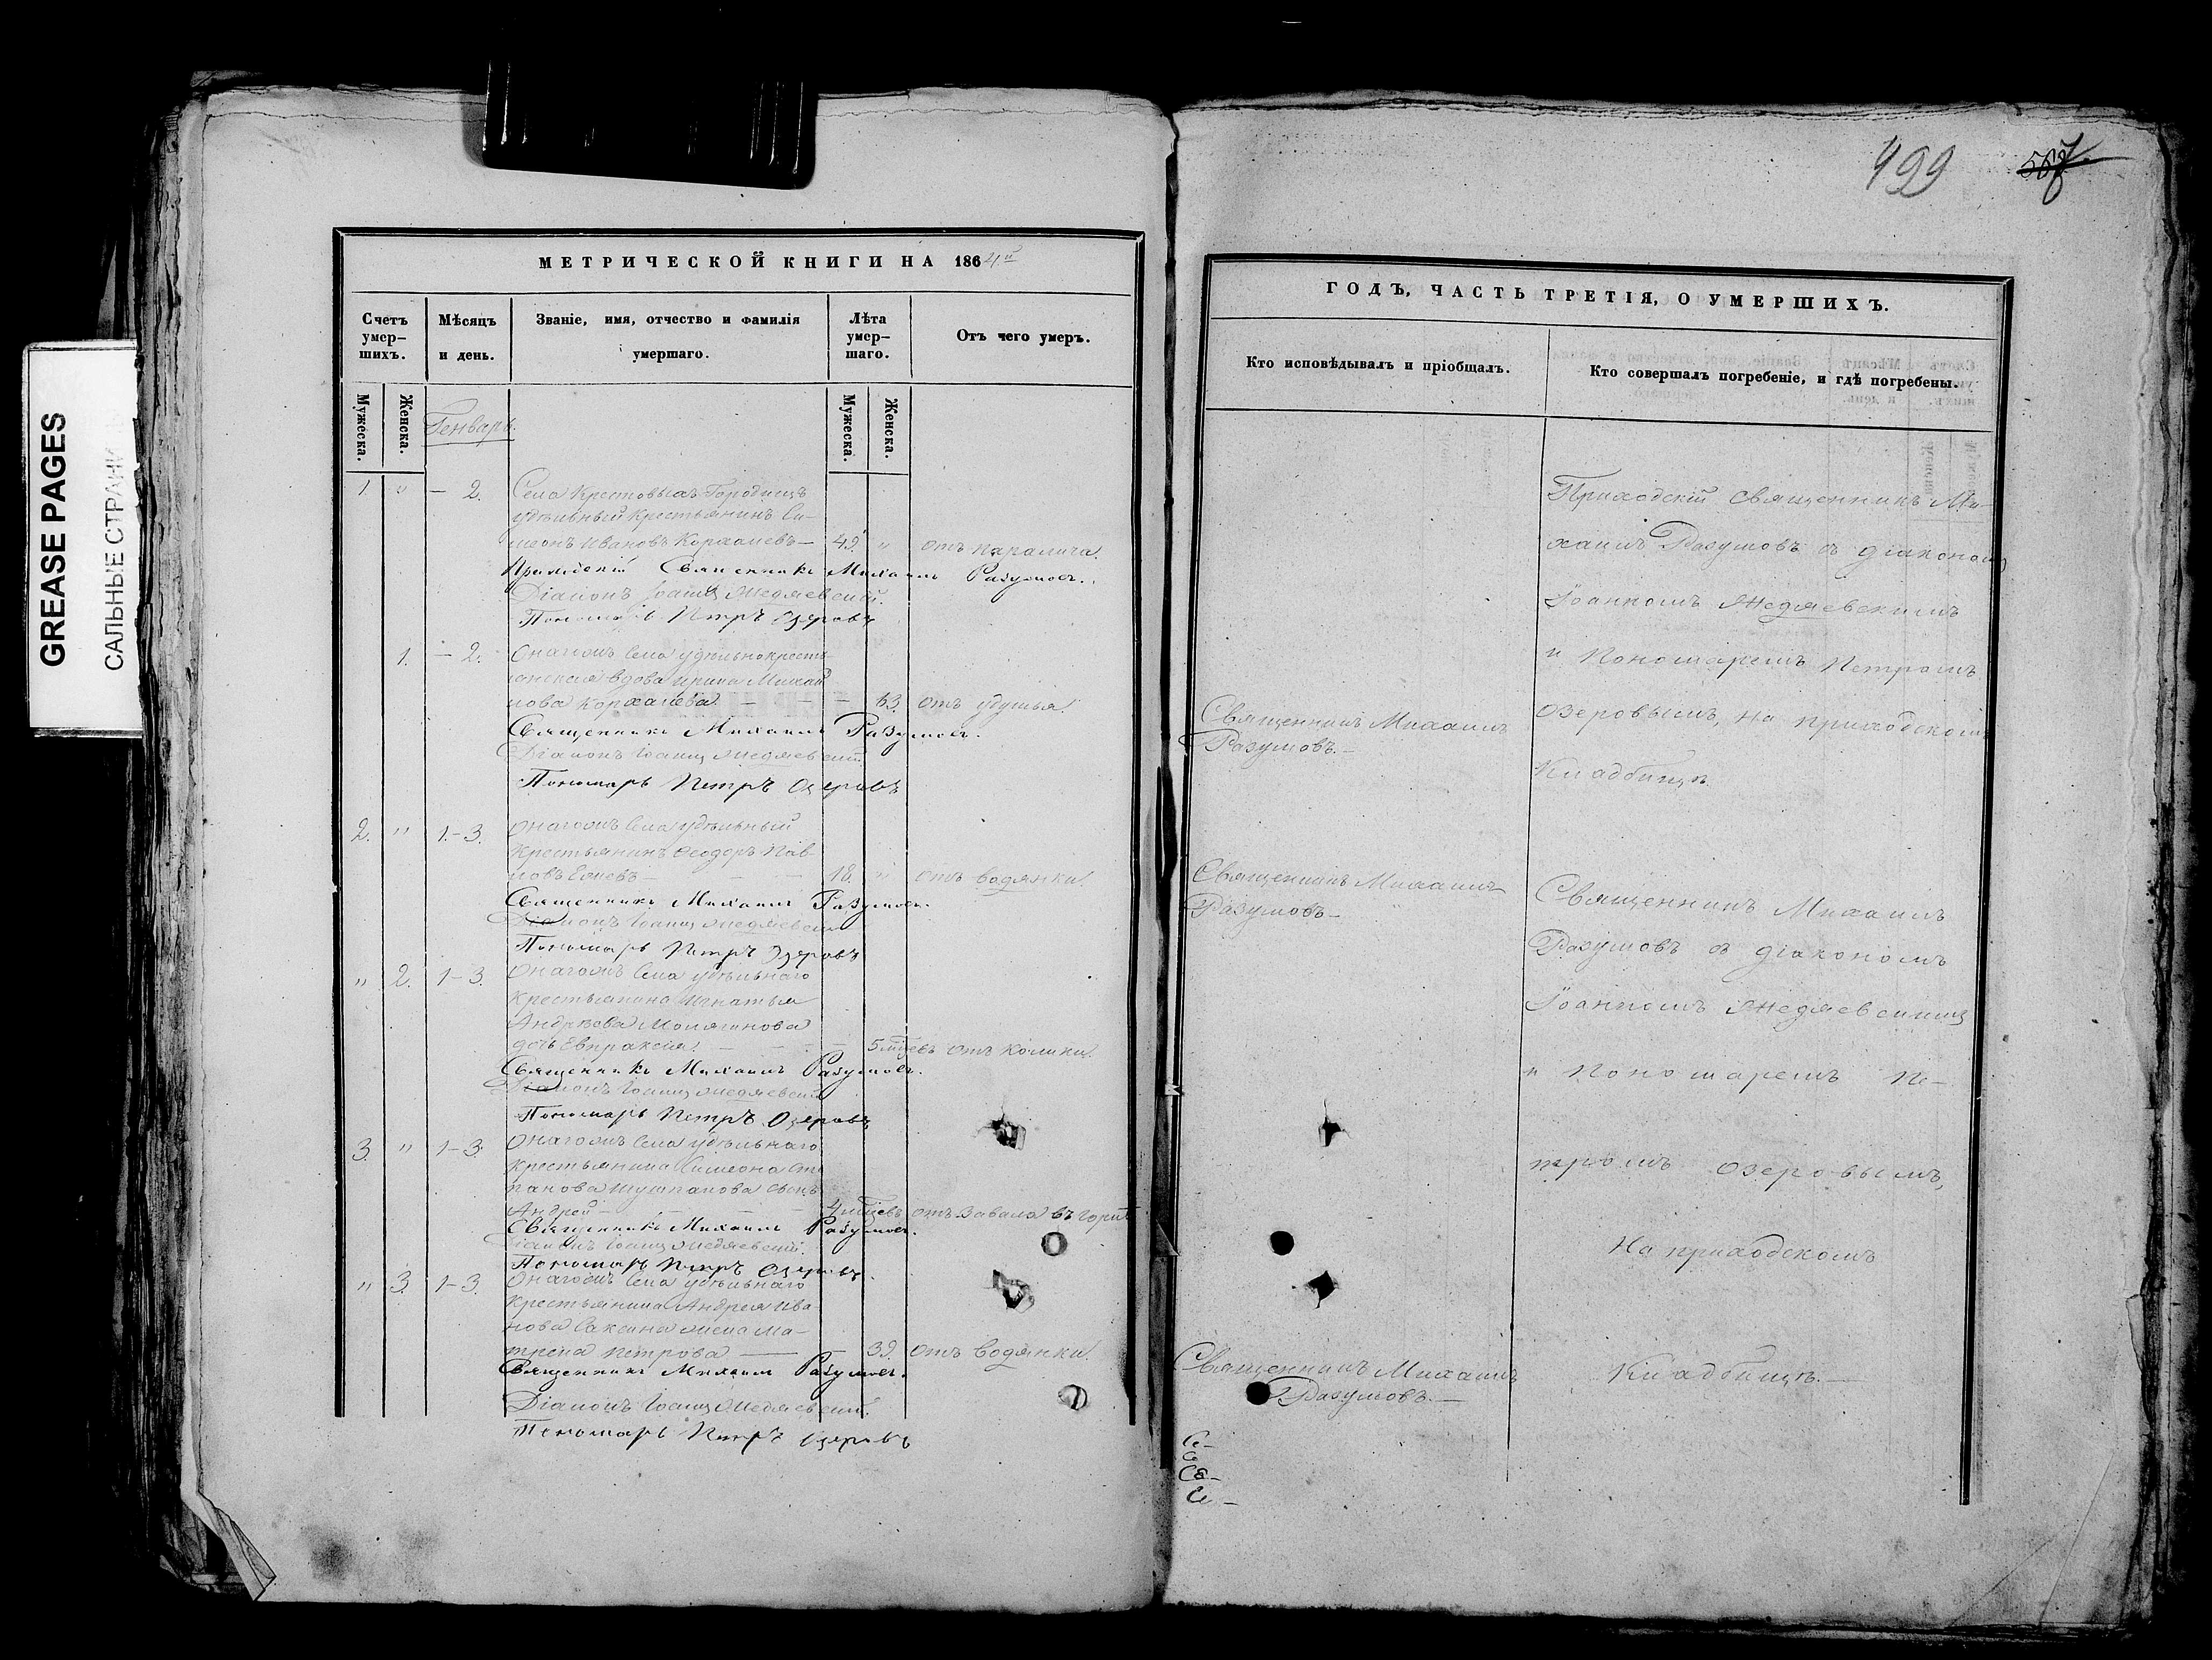 499 567
GREASE PAGES
САЛЬНЫЕ СТРАНИ
МЕТРИЧЕСКОЙ КНИГИ НА 1864й
Счетъ умер–шихъ.
Мѣсяцъ и день.
Званіе, имя, отчество и фамилія умершаго.
Лѣта умер–шаго.
Отъ чего умеръ.
Мужеска.
Женска.
Генварь.
Мужеска.
Женска.
1. " – 2. Села Крестовыхъ Городищъ
удѣльный крестьянинъ Си-
меонъ Ивановъ – 49. " отъ паралича.
Приходскій Священникъ Михаилъ Разумовъ.
Діаконъ Іоаннъ
Пономарь Петръ Озеровъ
1. – 2. Онагожъ села удѣльнокресть-
янская вдова Ирина Михай-
лова – – – 63 отъ удушья.
Священникъ Михаилъ Разумовъ.
Діаконъ Іоаннъ
Пономарь Петръ Озеровъ
2. " 1–3. Онагожъ села удѣльный
крестьянинъ Ѳеодоръ Пав-
ловъ – – – 18. " отъ водянки.
Священникъ Михаилъ Разумовъ.
Діаконъ Іоаннъ
Пономарь Петръ Озеровъ
" 2. 1–3. Онагожъ села удѣльнаго
крестьянина Игнатья
Андрѣева
дочь Евпраксія. – – – – 5 мѣцевъ отъ колики.
Священникъ Михаилъ Разумовъ.
Діаконъ Іоаннъ
Пономарь Петръ Озеровъ
3. " 1–3. Онагожъ села удѣльнаго
крестьянина Симеона Сте-
панова сынъ
Андрей – – – – 4 мѣцевъ отъ завала въ горлѣ
Священникъ Михаилъ Разумовъ.
Діаконъ Іоаннъ
Пономарь Петръ Озеровъ
" 3. 1–3. Онагожъ села удѣльнаго
крестьянина Андрея Ива-
нова жена Ма-
трена Петрова – – 39. отъ водянки.
Священникъ Михаилъ Разумовъ.
Діаконъ Іоаннъ
Пономарь Петръ Озеровъ
ГОДЪ, ЧАСТЬ ТРЕТІЯ, О УМЕРШИХЪ.
Кто исповѣдывалъ и пріобщалъ.
Кто совершалъ погребеніе, и гдѣ погребены.
Приходскій Священникъ Ми-
хаилъ Разумовъ съ діакономъ
Іоанномъ
и Пономаремъ Петромъ
Священникъ Михаилъ
Разумовъ.–
Озеровымъ, на приходскомъ
Кладбищѣ.
Священникъ Михаилъ
Разумовъ–
Священникъ Михаилъ
Разумовъ съ діакономъ
Іоанномъ
и Пономаремъ Пе-
тромъ Озеровымъ,
На приходскомъ
Священникъ Михаилъ
Разумовъ.–
Кладбищѣ.–